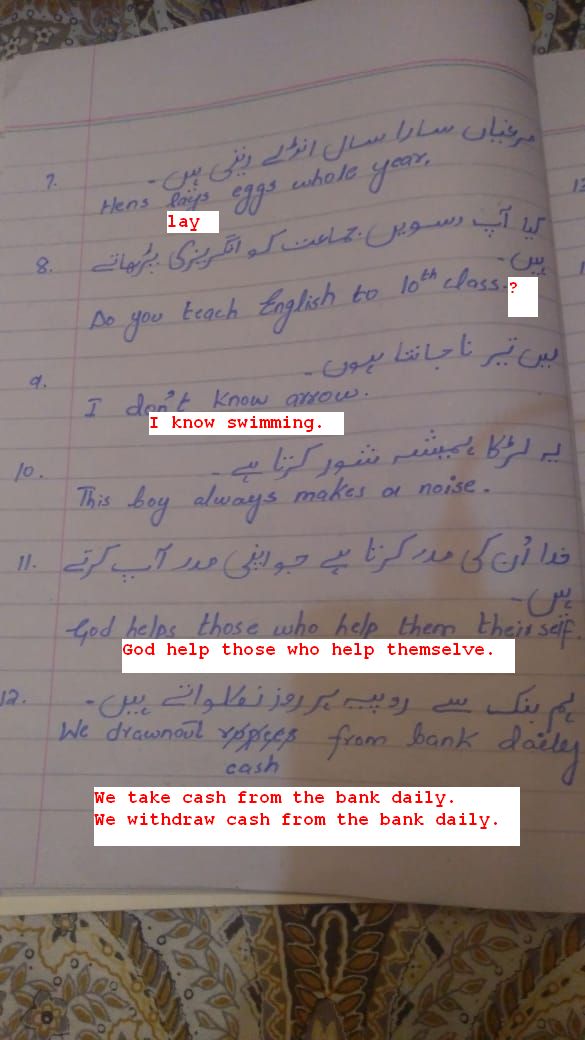 7. مرغیاں سارا سال انڈے دیتی ہیں۔
Hens lays eggs whole year.
lay
8. کیا آپ دسویں جماعت کو انگریزی پڑھاتے
ہیں۔
Do you teach English to 10th class.
?
9. میں تیرنا جانتا ہوں۔
I don't know arrow.
I know swimming.
10. یہ لڑکا ہمیشہ شور کرتا ہے۔
This boy always makes a noise.
11. خدا اُن کی مدد کرتا ہے جو اپنی مدد آپ کرتے
ہیں۔
God helps those who help them their self.
God help those who help themselve.
12. ہم بنک سے روپیہ ہر روز نکلواتے ہیں۔
We drawnout from bank daily
cash
We take cash from the bank daily.
We withdraw cash from the bank daily.